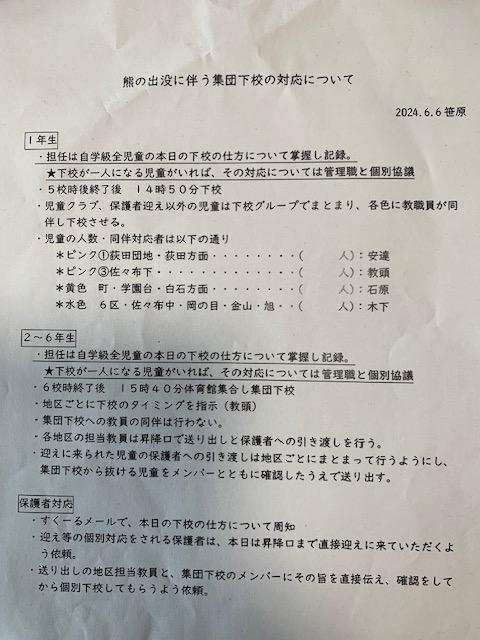 熊の出没に伴う集団下校の対応について
2024.6.6 笹原
1年生
・担任は自学級全児童の本日の下校の仕方について掌握し記録。
★下校が一人になる児童がいれば、その対応については管理職と個別協議
・5校時後終了後　14時50分下校
・児童クラブ、保護者迎え以外の児童は下校グループでまとまり、各色に教職員が同
伴し下校させる。
・児童の人数・同伴対応者は以下の通り
＊ピンク①荻田団地・荻田方面・・・・・・・・（　　　人）：安達
＊ピンク③佐々布下・・・・・・・・・・・・・（　　　人）：教頭
＊黄色　町・学園台・白石方面・・・・・・・・（　　　人）：石原
＊水色　6区・佐々布中・岡の目・金山・旭・・（　　　人）：木下
2～6年生
・担任は自学級全児童の本日の下校の仕方について掌握し記録。
★下校が一人になる児童がいれば、その対応については管理職と個別協議
・6校時終了後　15時40分体育館集合し集団下校
・地区ごとに下校のタイミングを指示（教頭）
・集団下校への教員の同伴は行わない。
・各地区の担当教員は昇降口で送り出しと保護者への引き渡しを行う。
・迎えに来られた児童の保護者への引き渡しは地区ごとにまとまって行うようにし、
集団下校から抜ける児童をメンバーとともに確認したうえで送り出す。
保護者対応
・すくーるメールで、本日の下校の仕方について周知
・迎え等の個別対応をされる保護者は、本日は昇降口まで直接迎えに来ていただくよ
う依頼。
・送り出しの地区担当教員と、集団下校のメンバーにその旨を直接伝え、確認をして
から個別下校してもらうよう依頼。